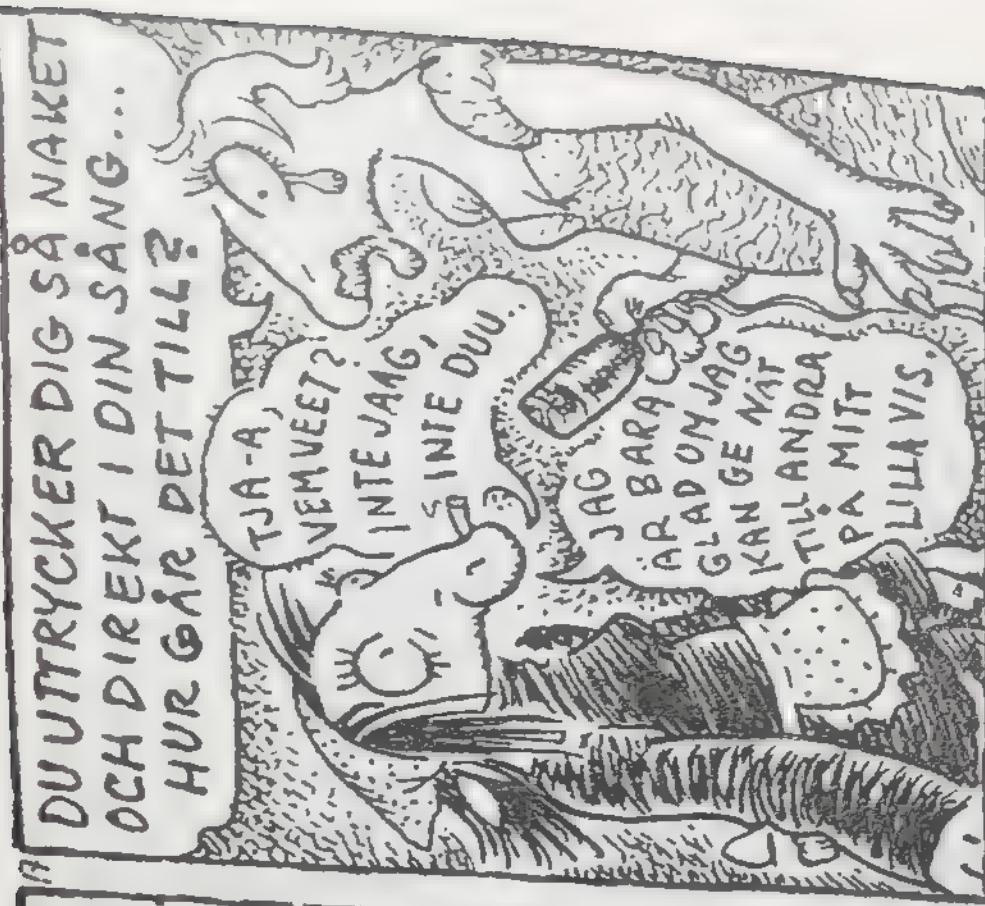 DU UTTRYCKER DIG SÅ NAKET
OCH DIREKT I DIN SÅNG...
HUR GÅR DET TILL?
TJA-A,
VEMVEET?
INTE JAAG,
INTE DUU..
JAG
ÄR BARA
GLAD OM JAG
KAN GE NÅT
TILL ANDRA
PÅ MITT
LILLA VIS.